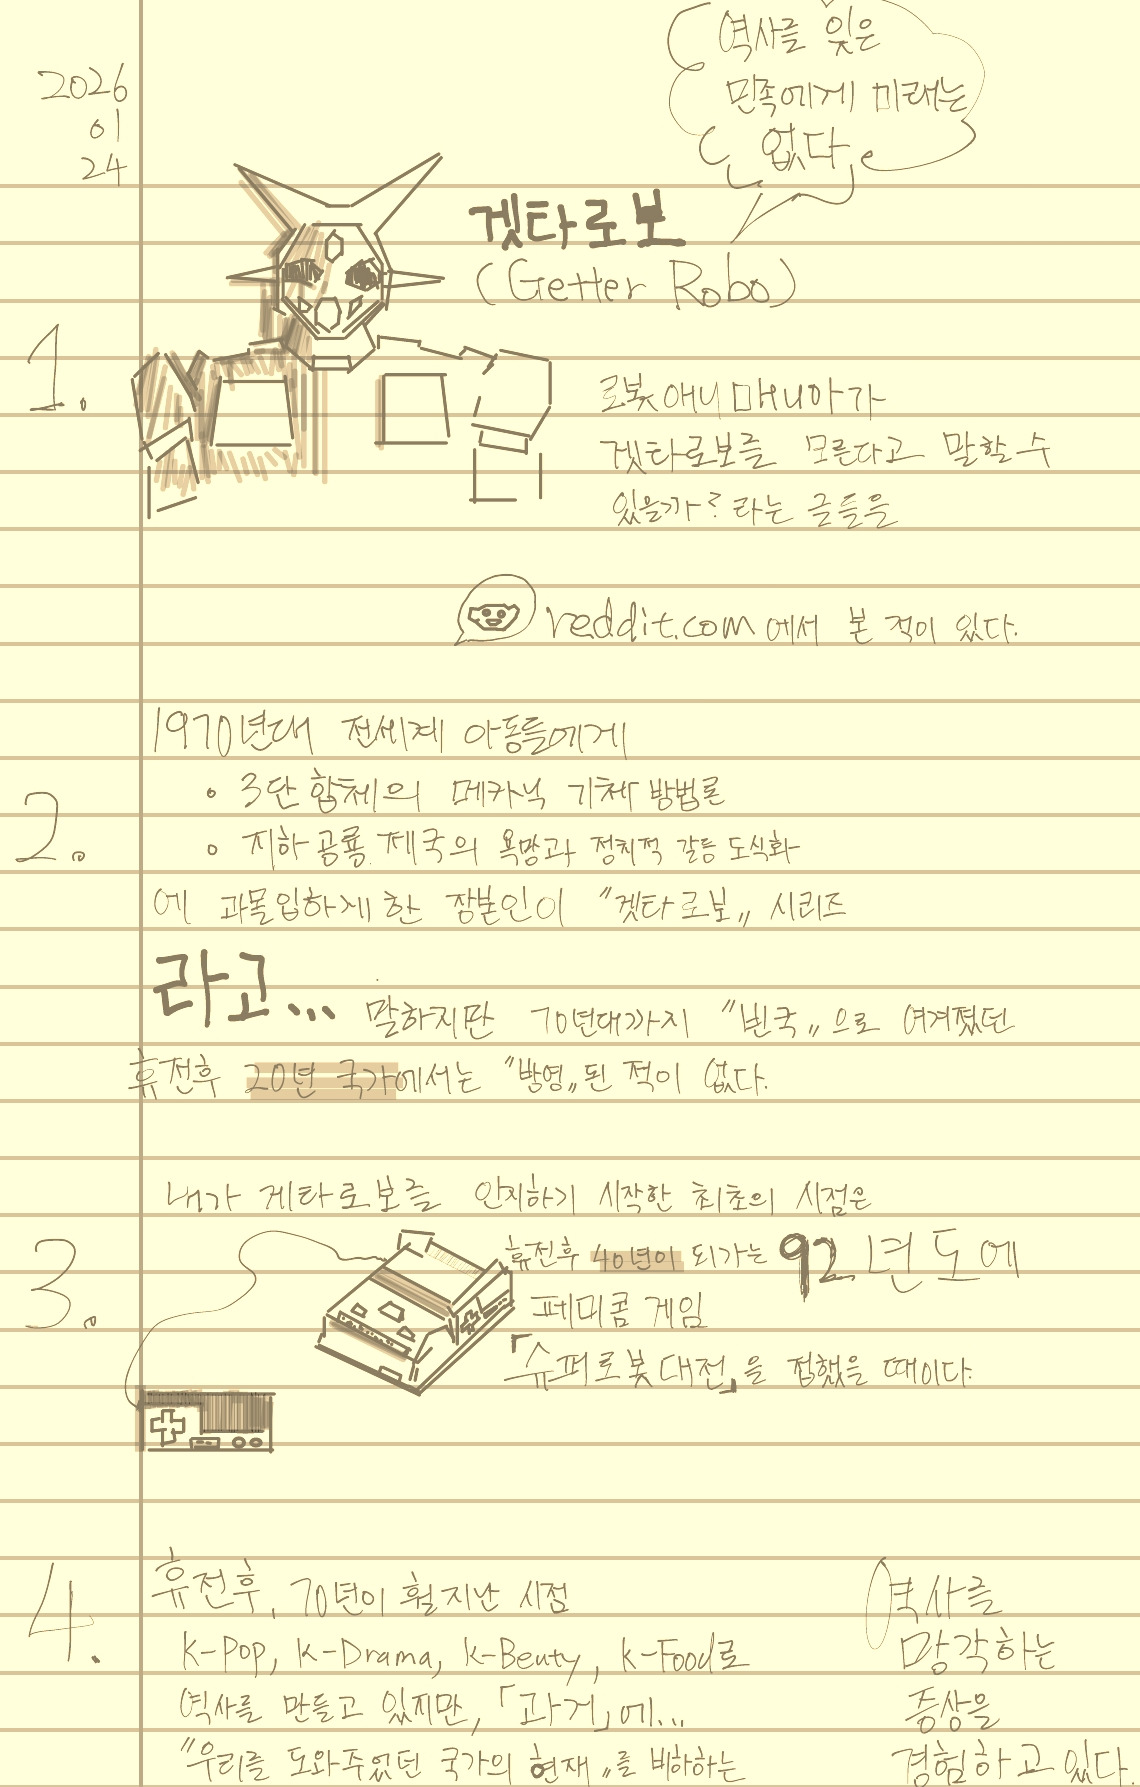 2026
01
24
역사를 잊은
민족에게 미래는
없다
겟타로보
(Getter Robo)
1.
로봇 애니 매니아가
겟타로보를 모른다고 말할 수
있을까? 라는 글들을
reddit.com에서 본 적이 있다.
2.
1970년대 전세계 아동들에게
• 3단 합체의 메카닉 기체 방법론
• 지하 공룡 제국의 욕망과 정치적 갈등 도식화
에 과몰입하게 한 장본인이 "겟타로보" 시리즈
라고...
말하지만 70년대까지 "빈국"으로 여겨졌던
휴전후 20년 국가에서는 "방영"된 적이 없다.
3.
내가 게타로보를 인지하기 시작한 최초의 시점은
휴전후 40년이 되가는 92년도에
페미콤 게임
「슈퍼로봇대전」을 접했을 때이다.
4.
휴전후, 70년이 훨 지난 시점
K-Pop, K-Drama, K-Beuty, K-Food로
역사를 만들고 있지만, 「과거」에...
"우리를 도와주었던 국가의 현재"를 비하하는
역사를
망각하는
증상을
경험하고 있다.